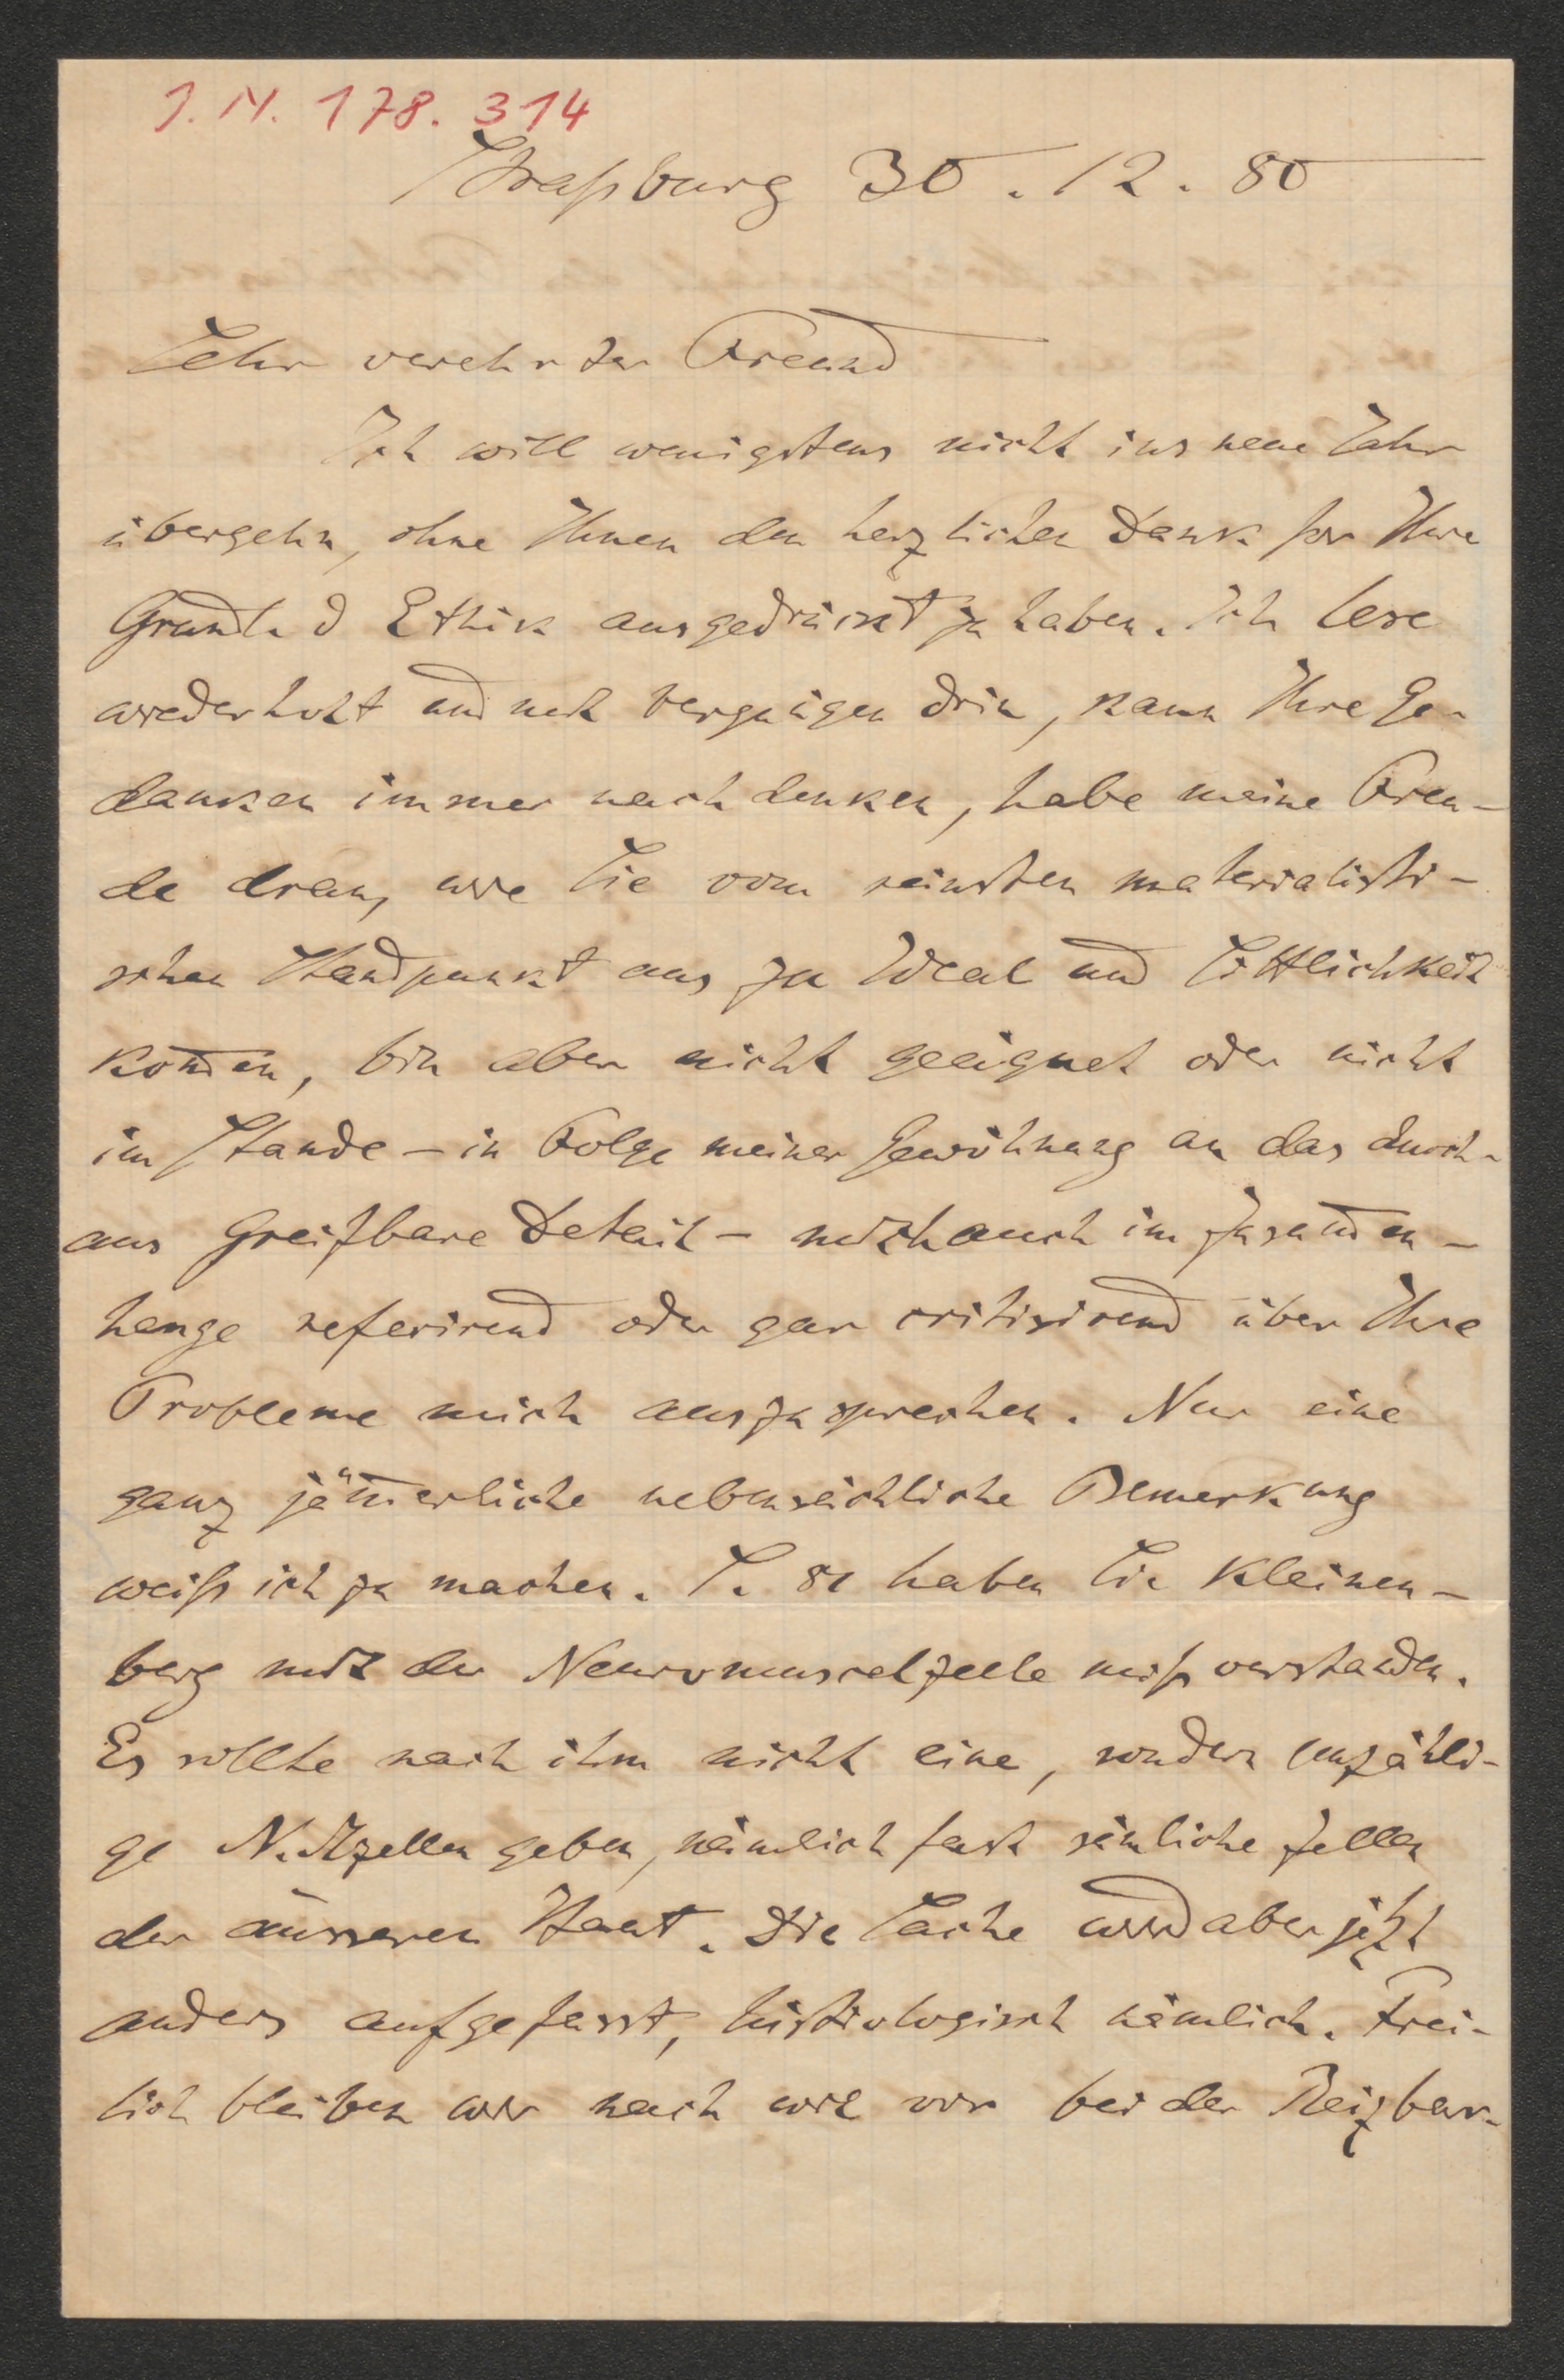 J. N. 178. 314
Straßburg 30. 12. 80
Sehr verehrter Freund
Ich will wenigstens nicht ins neue Jahr
übergehn, ohne Ihnen den herzlichen Dank for Ihre
Grundl. d Ethik ausgedrückt zu haben. Ich lese
wiederholt und mit Vergnügen drin, kann Ihre Ge-
danken immer nach denken, habe meine Freu-
de dran, wie Sie vom reinsten materialisti-
schen Standpunkt aus zu Ideal und Sittlichkeit
kom̄en, bin aber nicht geeignet oder nicht
im Stande – in Folge meiner Gewöhnung an das durch-
aus Greifbare Detail – mich auch im Zusam̄en-
hange referirend oder gar critisirend über Ihre
Probleme mich auszusprechen. Nur eine
ganz jäm̄erliche nebensächliche Bemerkung
weiß ich zu machen. S. 81 haben Sie Kleinen-
berg mit der Neuromuscelzelle mißverstanden.
Es sollte nach ihm nicht eine, sondern unzähli-
ge N. Mzellen geben, nämlich fast sämliche Zellen
der äusseren Haut. Die Sache wird aber jetzt
anders aufgefasst, histiologisch nämlich. Frei-
lich bleiben wir nach wie vor bei der Reizbar-